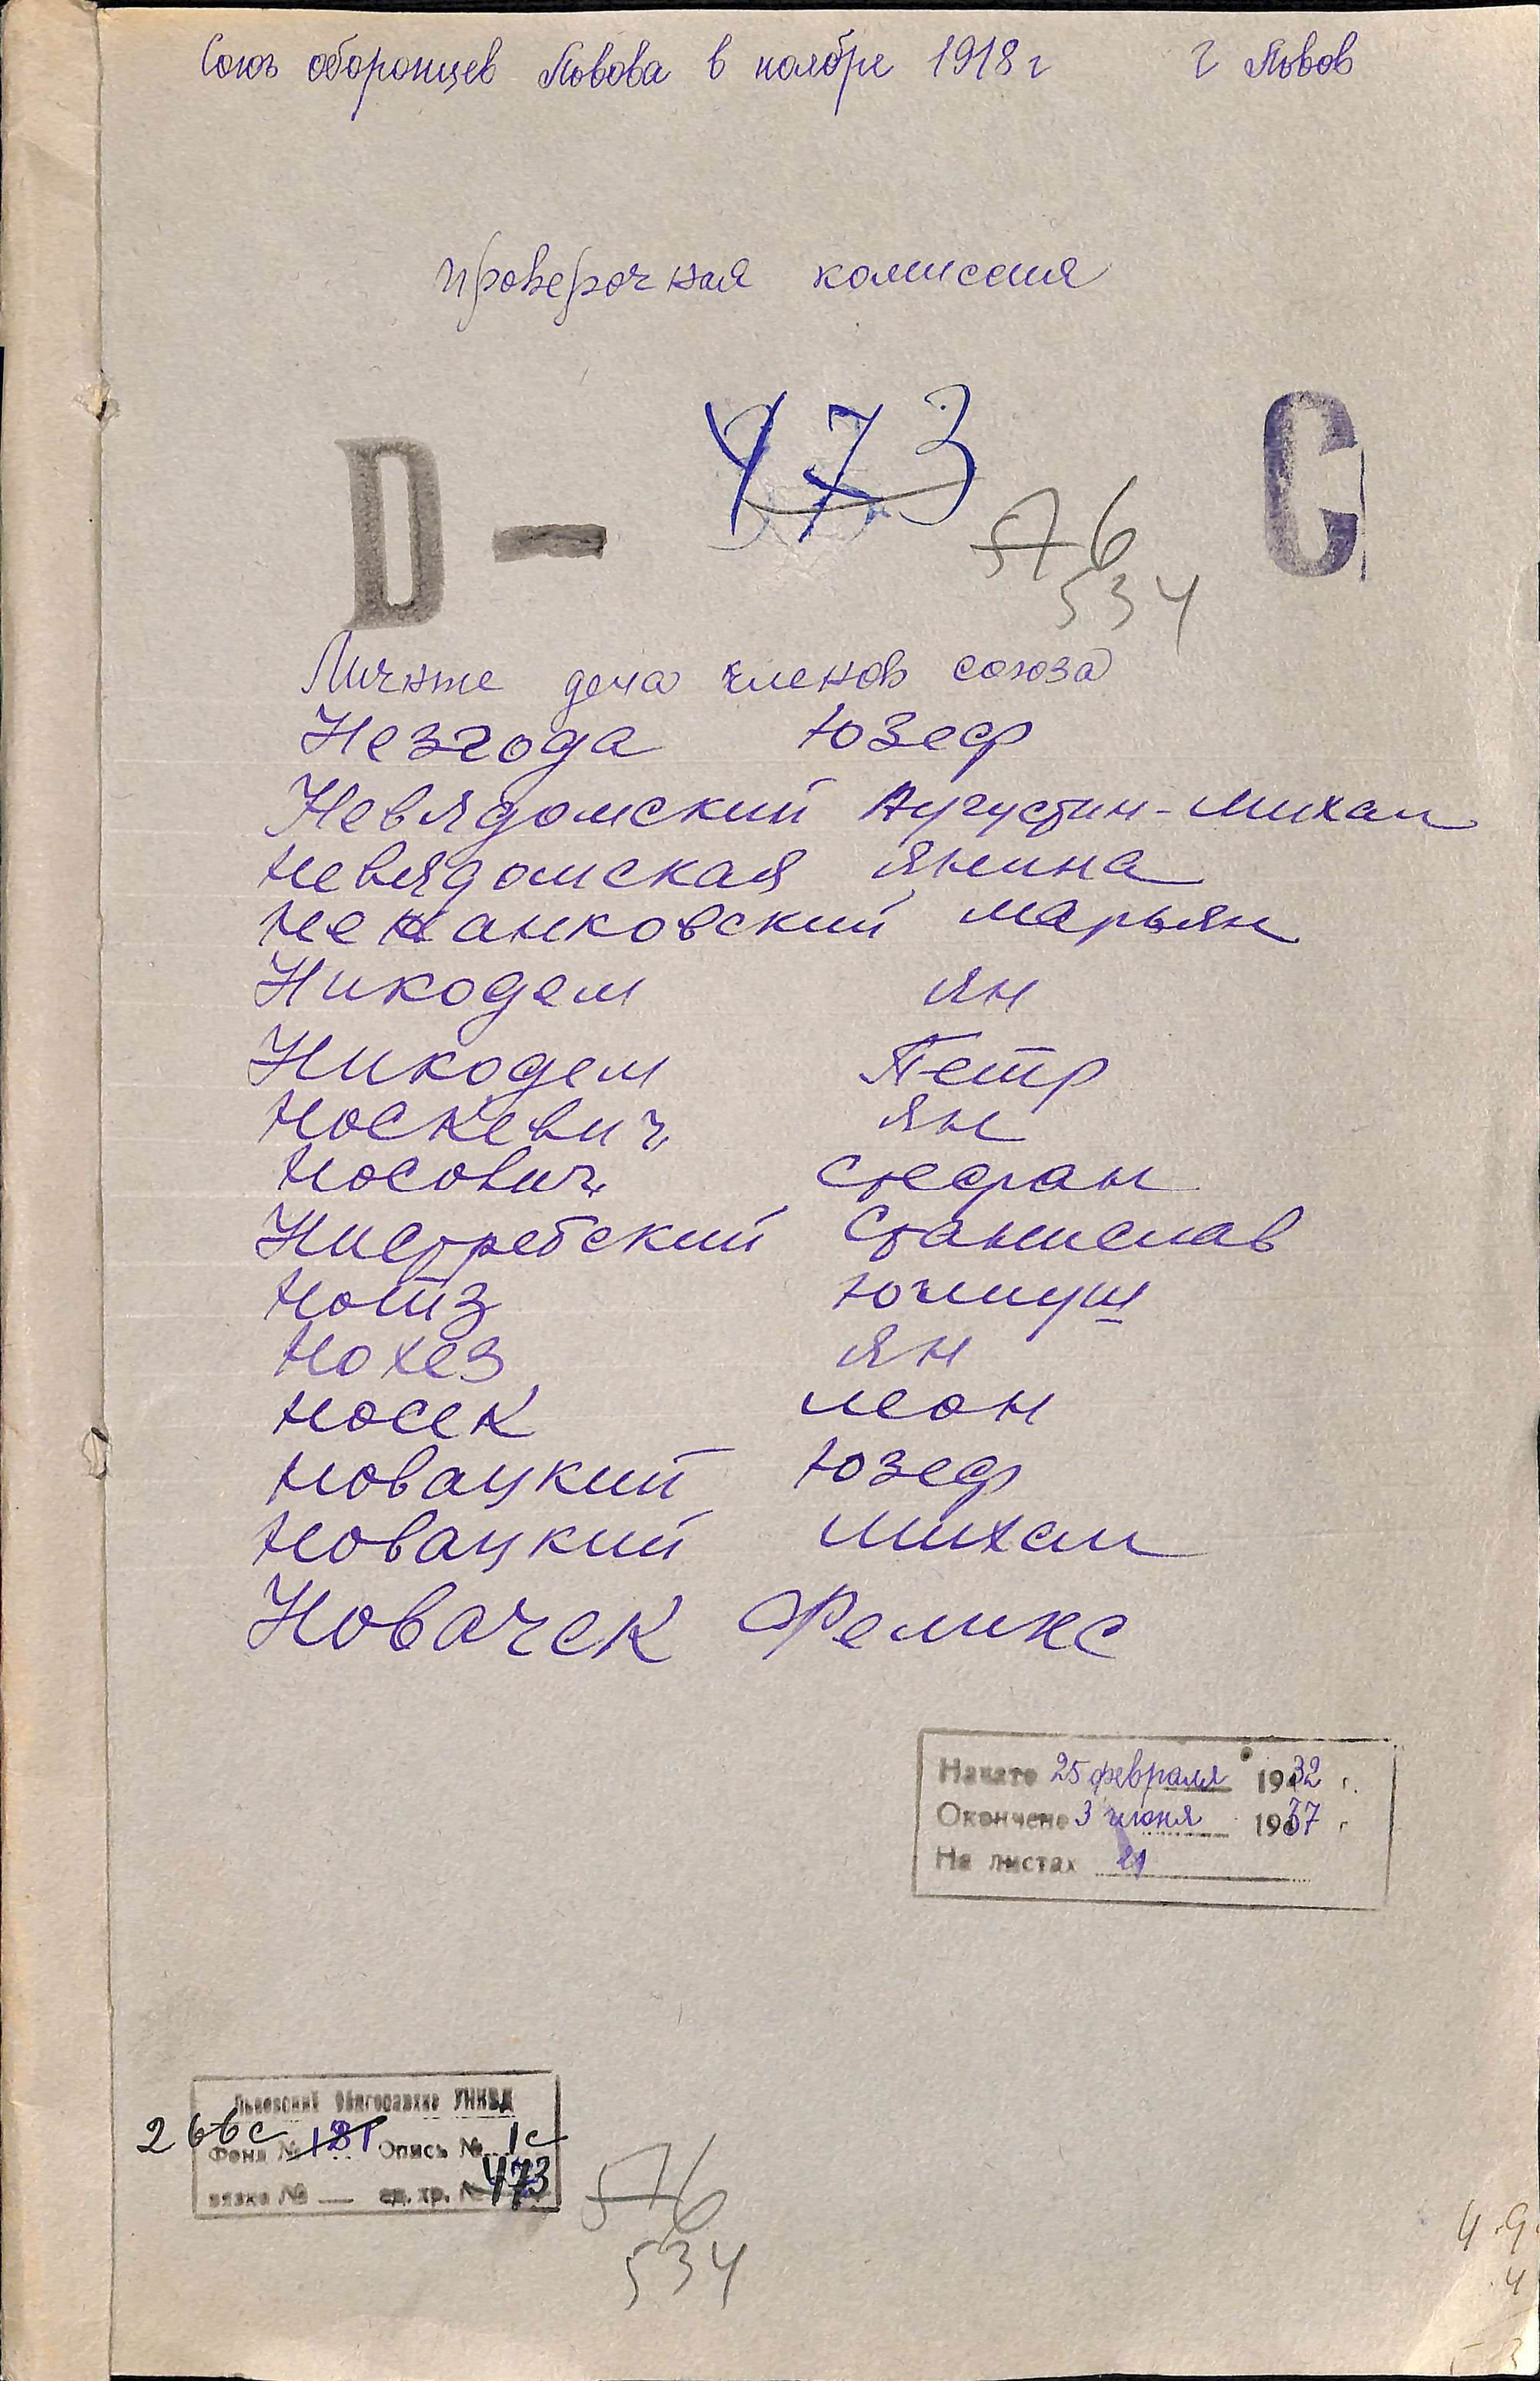 Союз оборонцев Львова в ноябре 1918 г г Львов
проверочная комиссия
D — 473 С
576
534
Личные дела членов союза
Незгода Юзеф
Невядомский Аугустин-Михал
Невядомская Янина
Нежанковский Марьян
Никодем Ян
Никодем Петр
Носкевич Ян
Носович Стефан
Нистребский Станислав
Нотз Юлиуш
Нохез Ян
Носек Леон
Новацкий Юзеф
Новацкий Михал
Новачек Феликс
Начато 25 февраля 1932 г.
Окончено 3 июня 1937 г
На листах 21
Львовский Облгосархив УНКВД
266с
Фонд № 181 Опись № 1с
вязка № — ед. хр. № 473
576
534